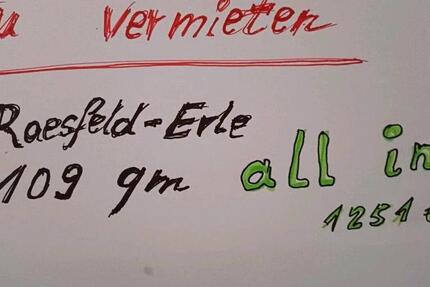 zu vermieten
Raesfeld-Erle
109 qm all in
1251 €